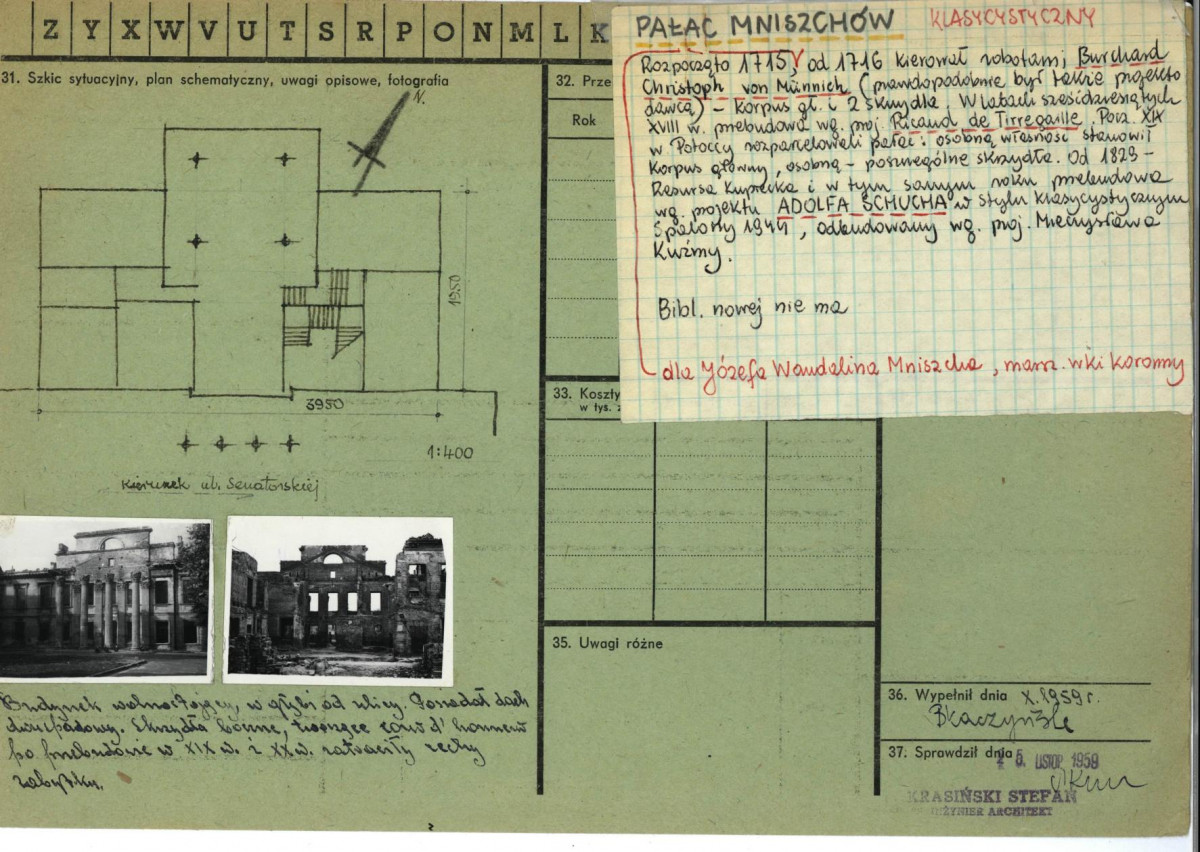 Z Y X W V U T S R P O N M L K
31. Szkic sytuacyjny, plan schematyczny, uwagi opisowe, fotografia
N.
1950
3950
1:400
Kierunek ul. Senatorskiej
Budynek wolnostojący, w głębi od ulicy. Posiadał dach
dwuspadowy. Skrzydła boczne, tworzące cour d'honneur
po przebudowie w XIX w. i XX w. zatraciły cechy
zabytku.
32. Prze
Rok
33. Koszty
w tys. z
35. Uwagi różne
36. Wypełnił dnia X.1959 r.
37. Sprawdził dnia
LISTOP 1959
KRASIŃSKI STEFAN
INŻYNIER ARCHITEKT
PAŁAC MNISZCHÓW KLASYCYSTYCZNY
Rozpoczęto 1715, od 1716 kierował robotami Burchard
Christoph von Münnich (prawdopodobnie był także projekto
dawcą) – Korpus gł. i 2 skrzydła. W latach sześćdziesiątych
XVIII w. przebudowa wg. proj. Ricaud de Tirregaille. Pocz. XIX
w Potoccy rozparcelowali pałac i osobną własność stanowił
Korpus główny, osobną – poszczególne skrzydła. Od 1829 –
Resursa Kupiecka i w tym samym roku przebudowa
wg. projektu ADOLFA SCHUCHA w stylu klasycystycznym
Spalony 1944, odbudowany wg. proj. Mieczysława
Kuźmy.
Bibl. nowej nie ma
dla Józefa Wandalina Mniszcha, marsz. wki Koronny